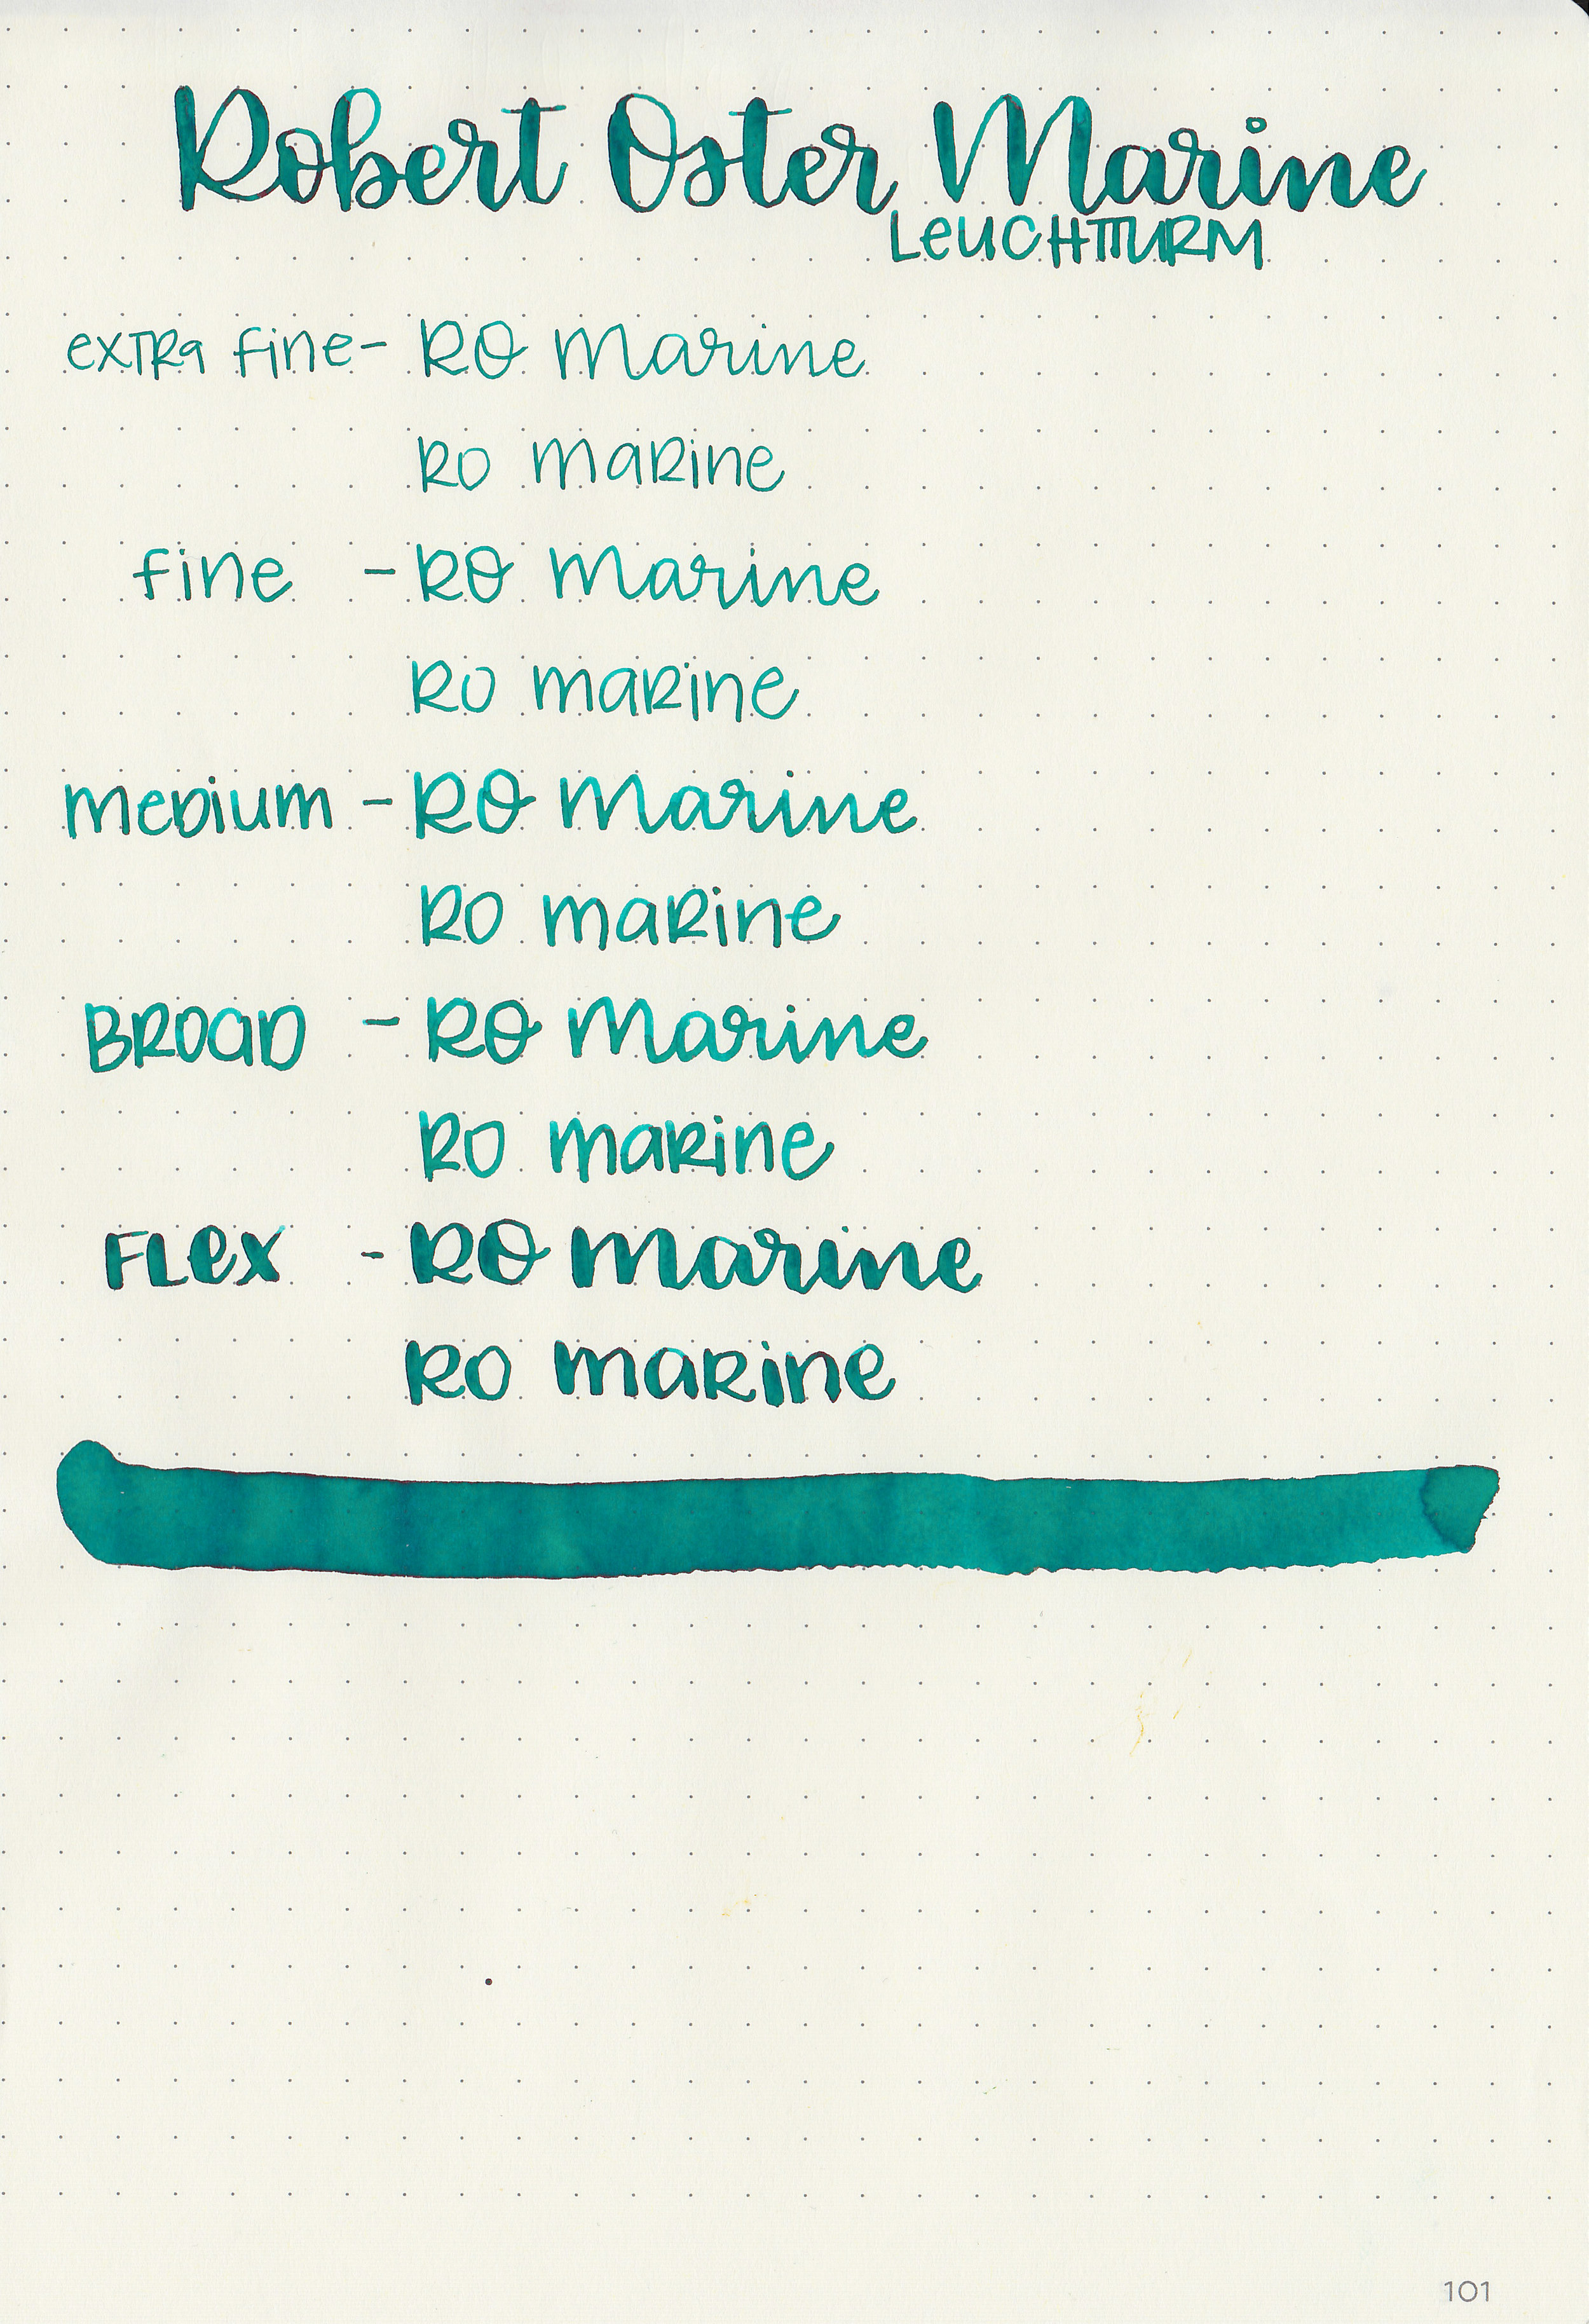 Robert Oster Marine
LeUCHTTURM
exTRa fine - RO Marine
RO maRine
fine - RO Marine
RO maRine
meDium - RO Marine
RO maRine
BROaD - RO Marine
RO maRine
FLex - RO Marine
RO maRine
101